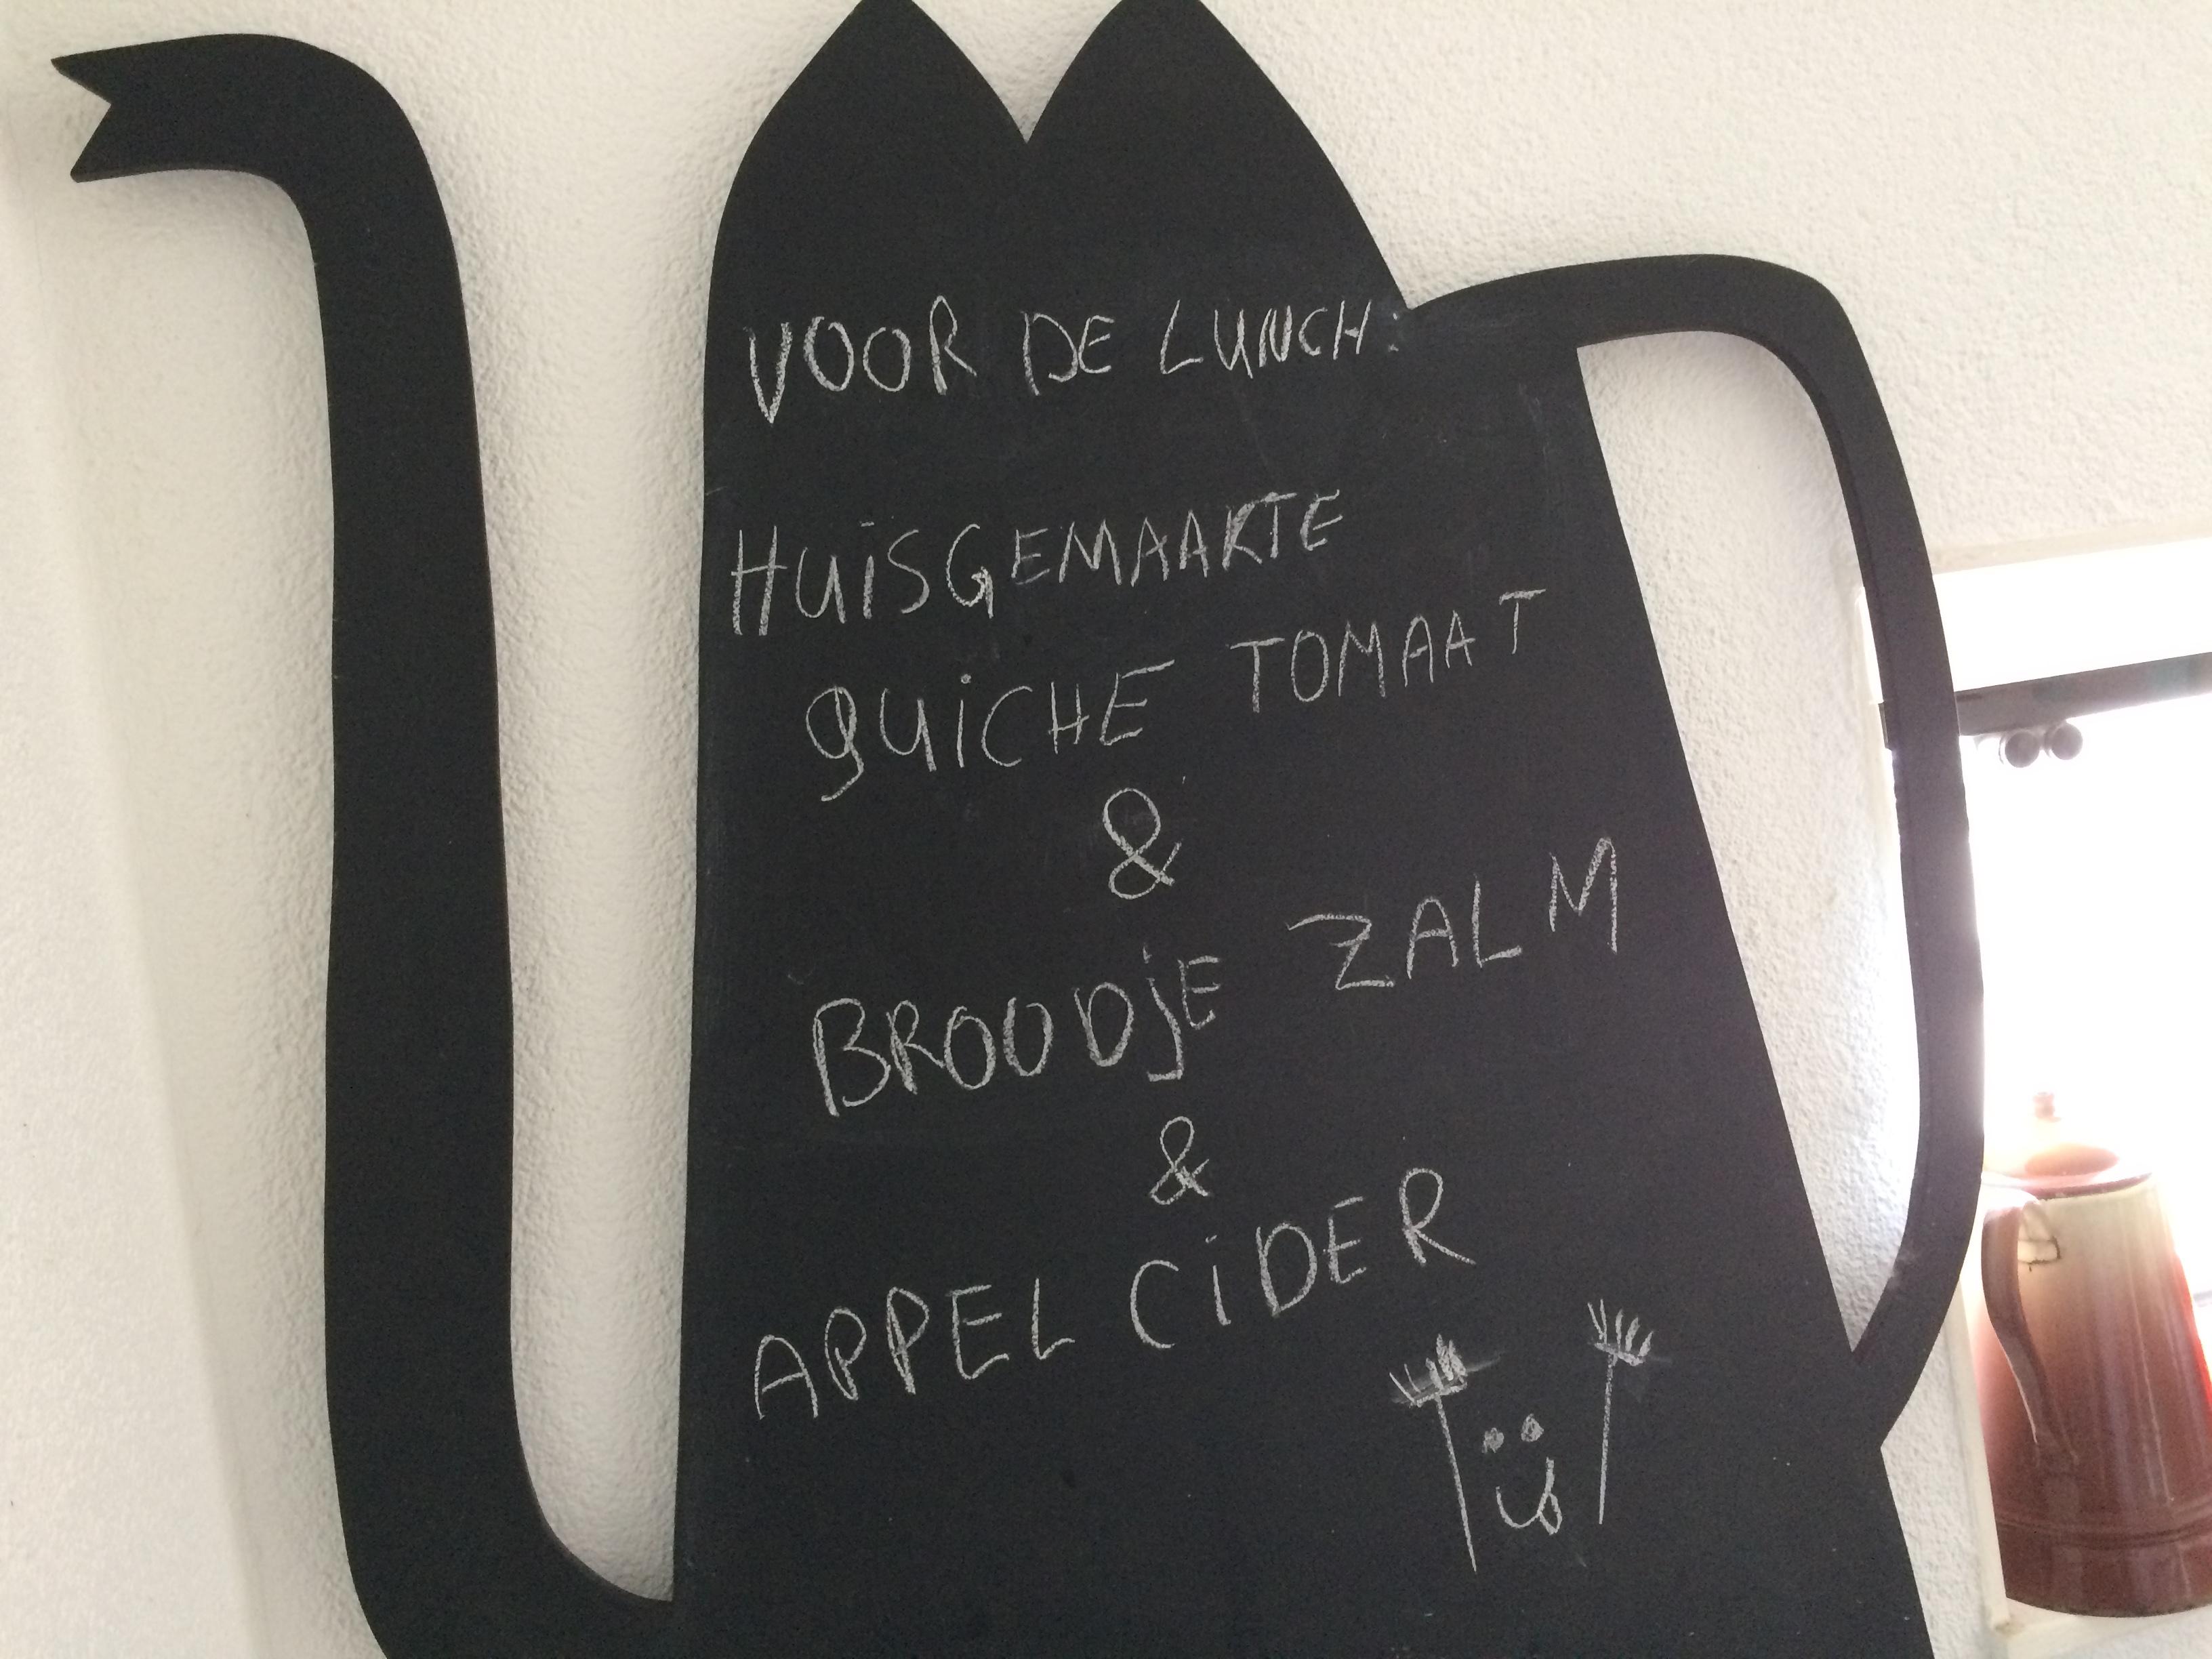 VOOR DE LUNCH:
HUiSGEMAAKTE
QUiCHE TOMAAT
&
BROODjE ZALM
&
APPEL CiDER